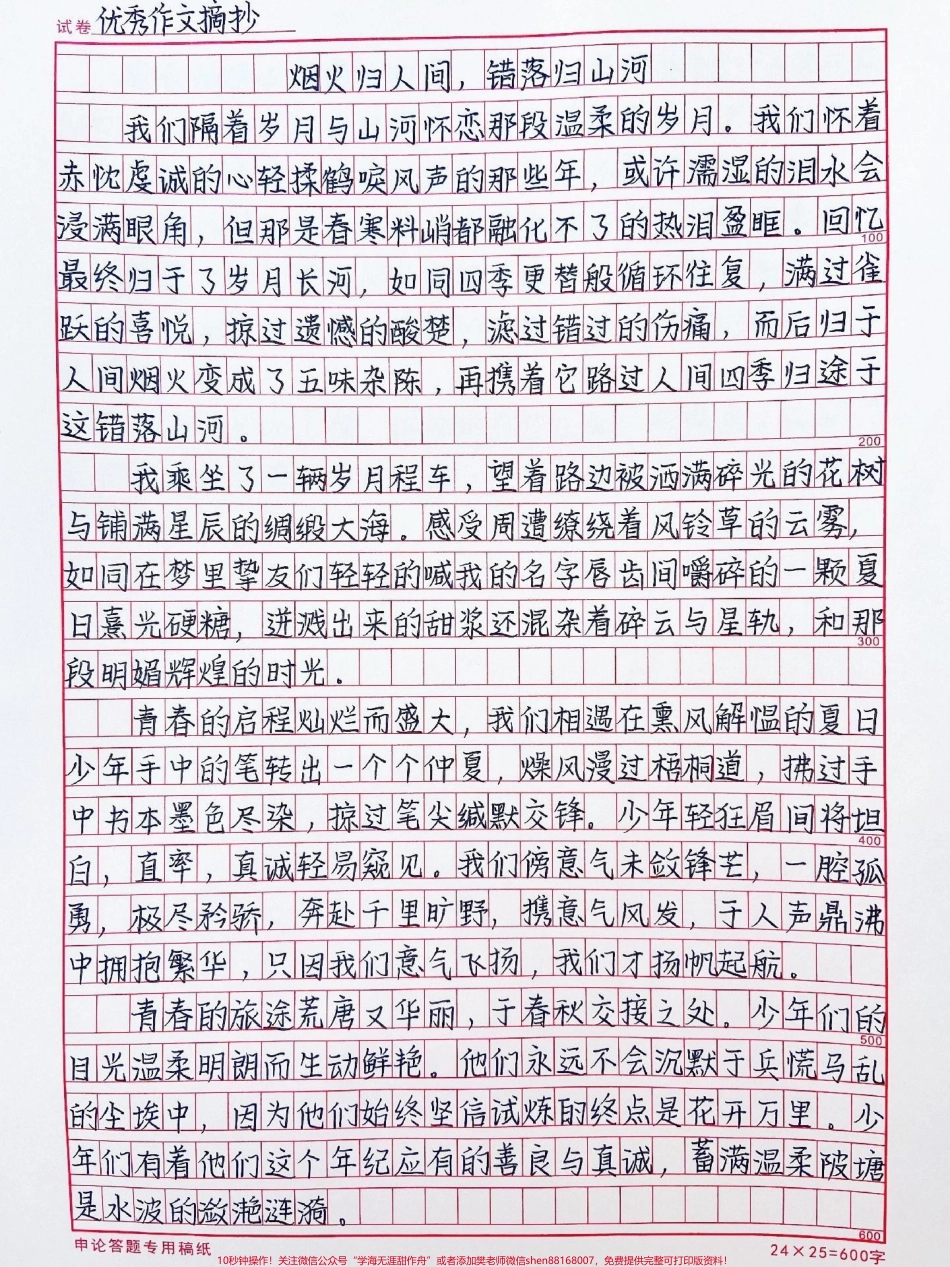 试卷 优秀作文摘抄
烟火归人间，错落归山河
我们隔着岁月与山河怀恋那段温柔的岁月。我们怀着
赤忱虔诚的心轻揉鹤唳风声的那些年，或许濡湿的泪水会
浸满眼角，但那是春寒料峭都融化不了的热泪盈眶。回忆
100
最终归于了岁月长河，如同四季更替般循环往复，满过雀
跃的喜悦，掠过遗憾的酸楚，滤过错过的伤痛，而后归于
人间烟火变成了五味杂陈，再携着它路过人间四季归途于
这错落山河。
200
我乘坐了一辆岁月程车，望着路边被洒满碎光的花树
与铺满星辰的绸缎大海。感受周遭缭绕着风铃草的云雾，
如同在梦里挚友们轻轻的喊我的名字唇齿间嚼碎的一颗夏
日熹光硬糖，迸溅出来的甜浆还混杂着碎云与星轨，和那
300
段明媚辉煌的时光。
青春的启程灿烂而盛大，我们相遇在熏风解愠的夏日
少年手中的笔转出一个个仲夏，燥风漫过梧桐道，拂过手
中书本墨色尽染，掠过笔尖缄默交锋。少年轻狂眉间将坦
400
白，直率，真诚轻易窥见。我们傍意气未敛锋芒，一腔孤
勇，极尽矜骄，奔赴千里旷野，携意气风发，于人声鼎沸
中拥抱繁华，只因我们意气飞扬，我们才扬帆起航。
青春的旅途荒唐又华丽，于春秋交接之处。少年们的
500
目光温柔明朗而生动鲜艳。他们永远不会沉默于兵慌马乱
的尘埃中，因为他们始终坚信试炼的终点是花开万里。少
年们有着他们这个年纪应有的善良与真诚，蓄满温柔陂塘
是水波的潋滟涟漪。
600
申论答题专用稿纸 24×25=600字
10秒钟操作！关注微信公众号“学海无涯甜作舟”或者添加樊老师微信shen88168007，免费提供完整可打印版资料！